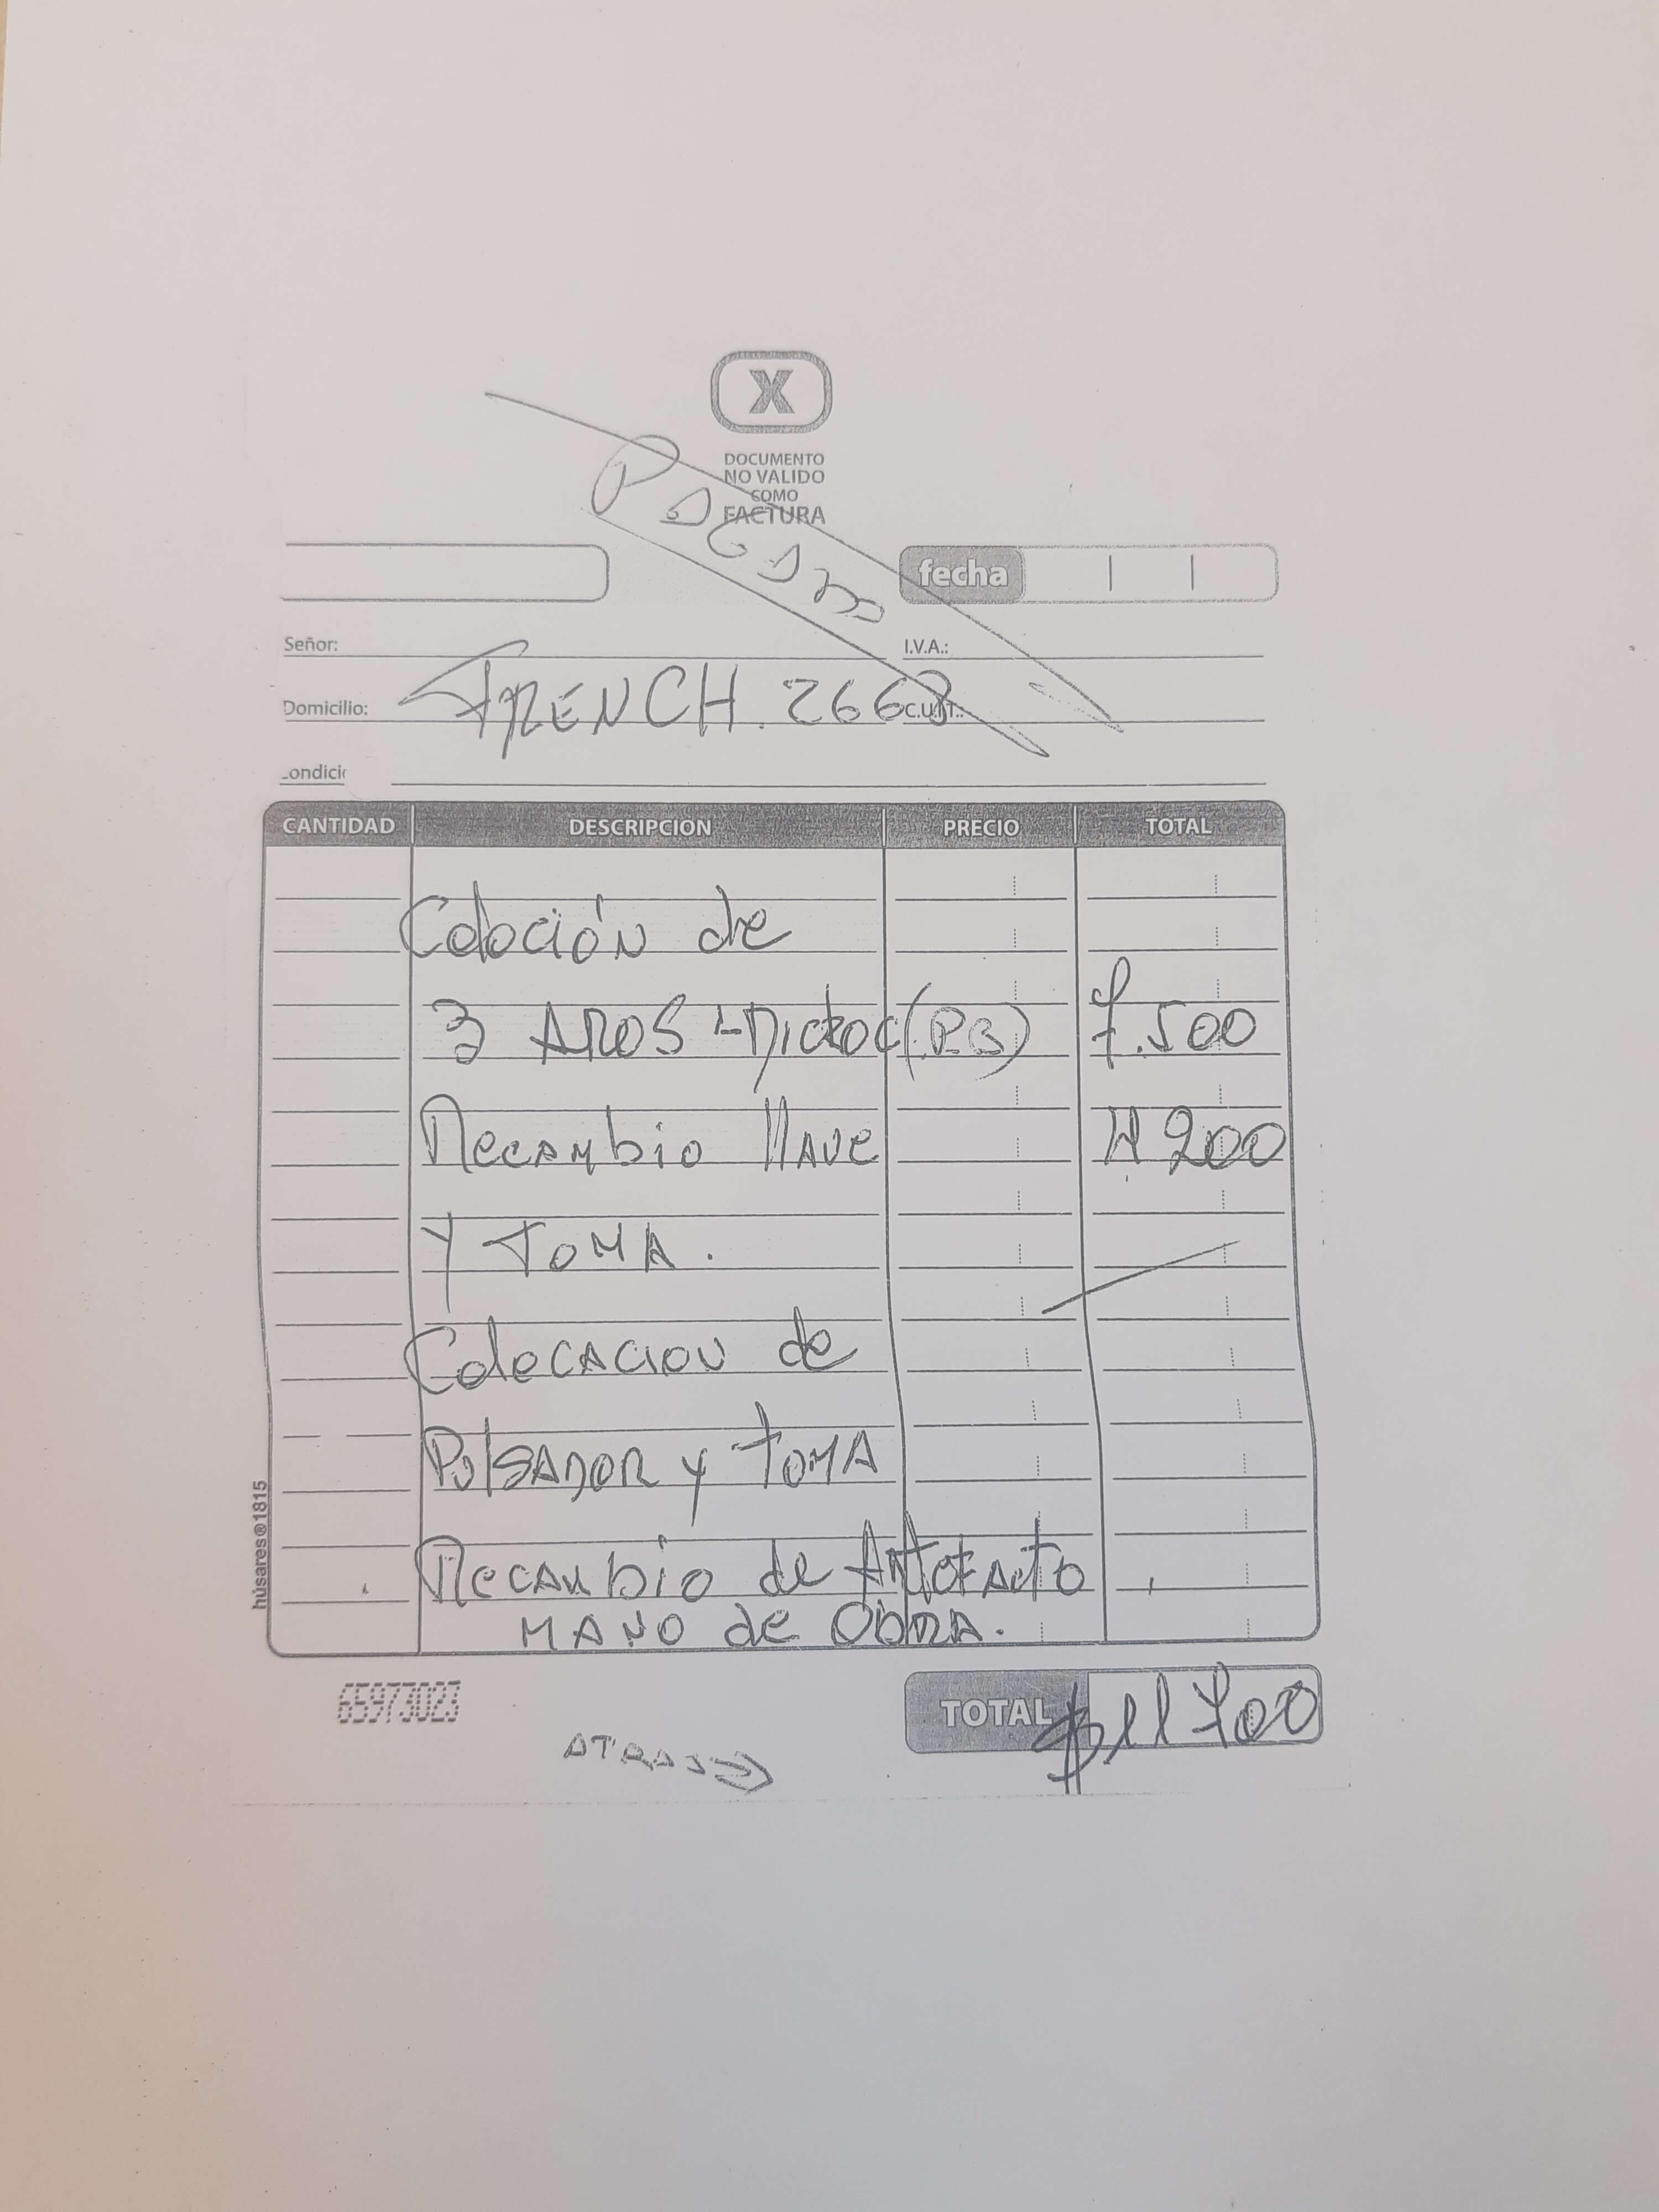 X
DOCUMENTO
NO VALIDO
COMO
FACTURA
PAGADO
fecha
Señor:
I.V.A.:
Domicilio: FRENCH 2668 C.U.I.T.:
CANTIDAD DESCRIPCION PRECIO TOTAL
Coloción de
3 AROS (PB) 7.500
Recambio llave 4.200
Y TOMA.
Colocacion de
Pulsador y toma
Recambio de Artefacto
MANO de OBRA.
húsares®1815
65973023
TOTAL $ 11 700
ATRAS